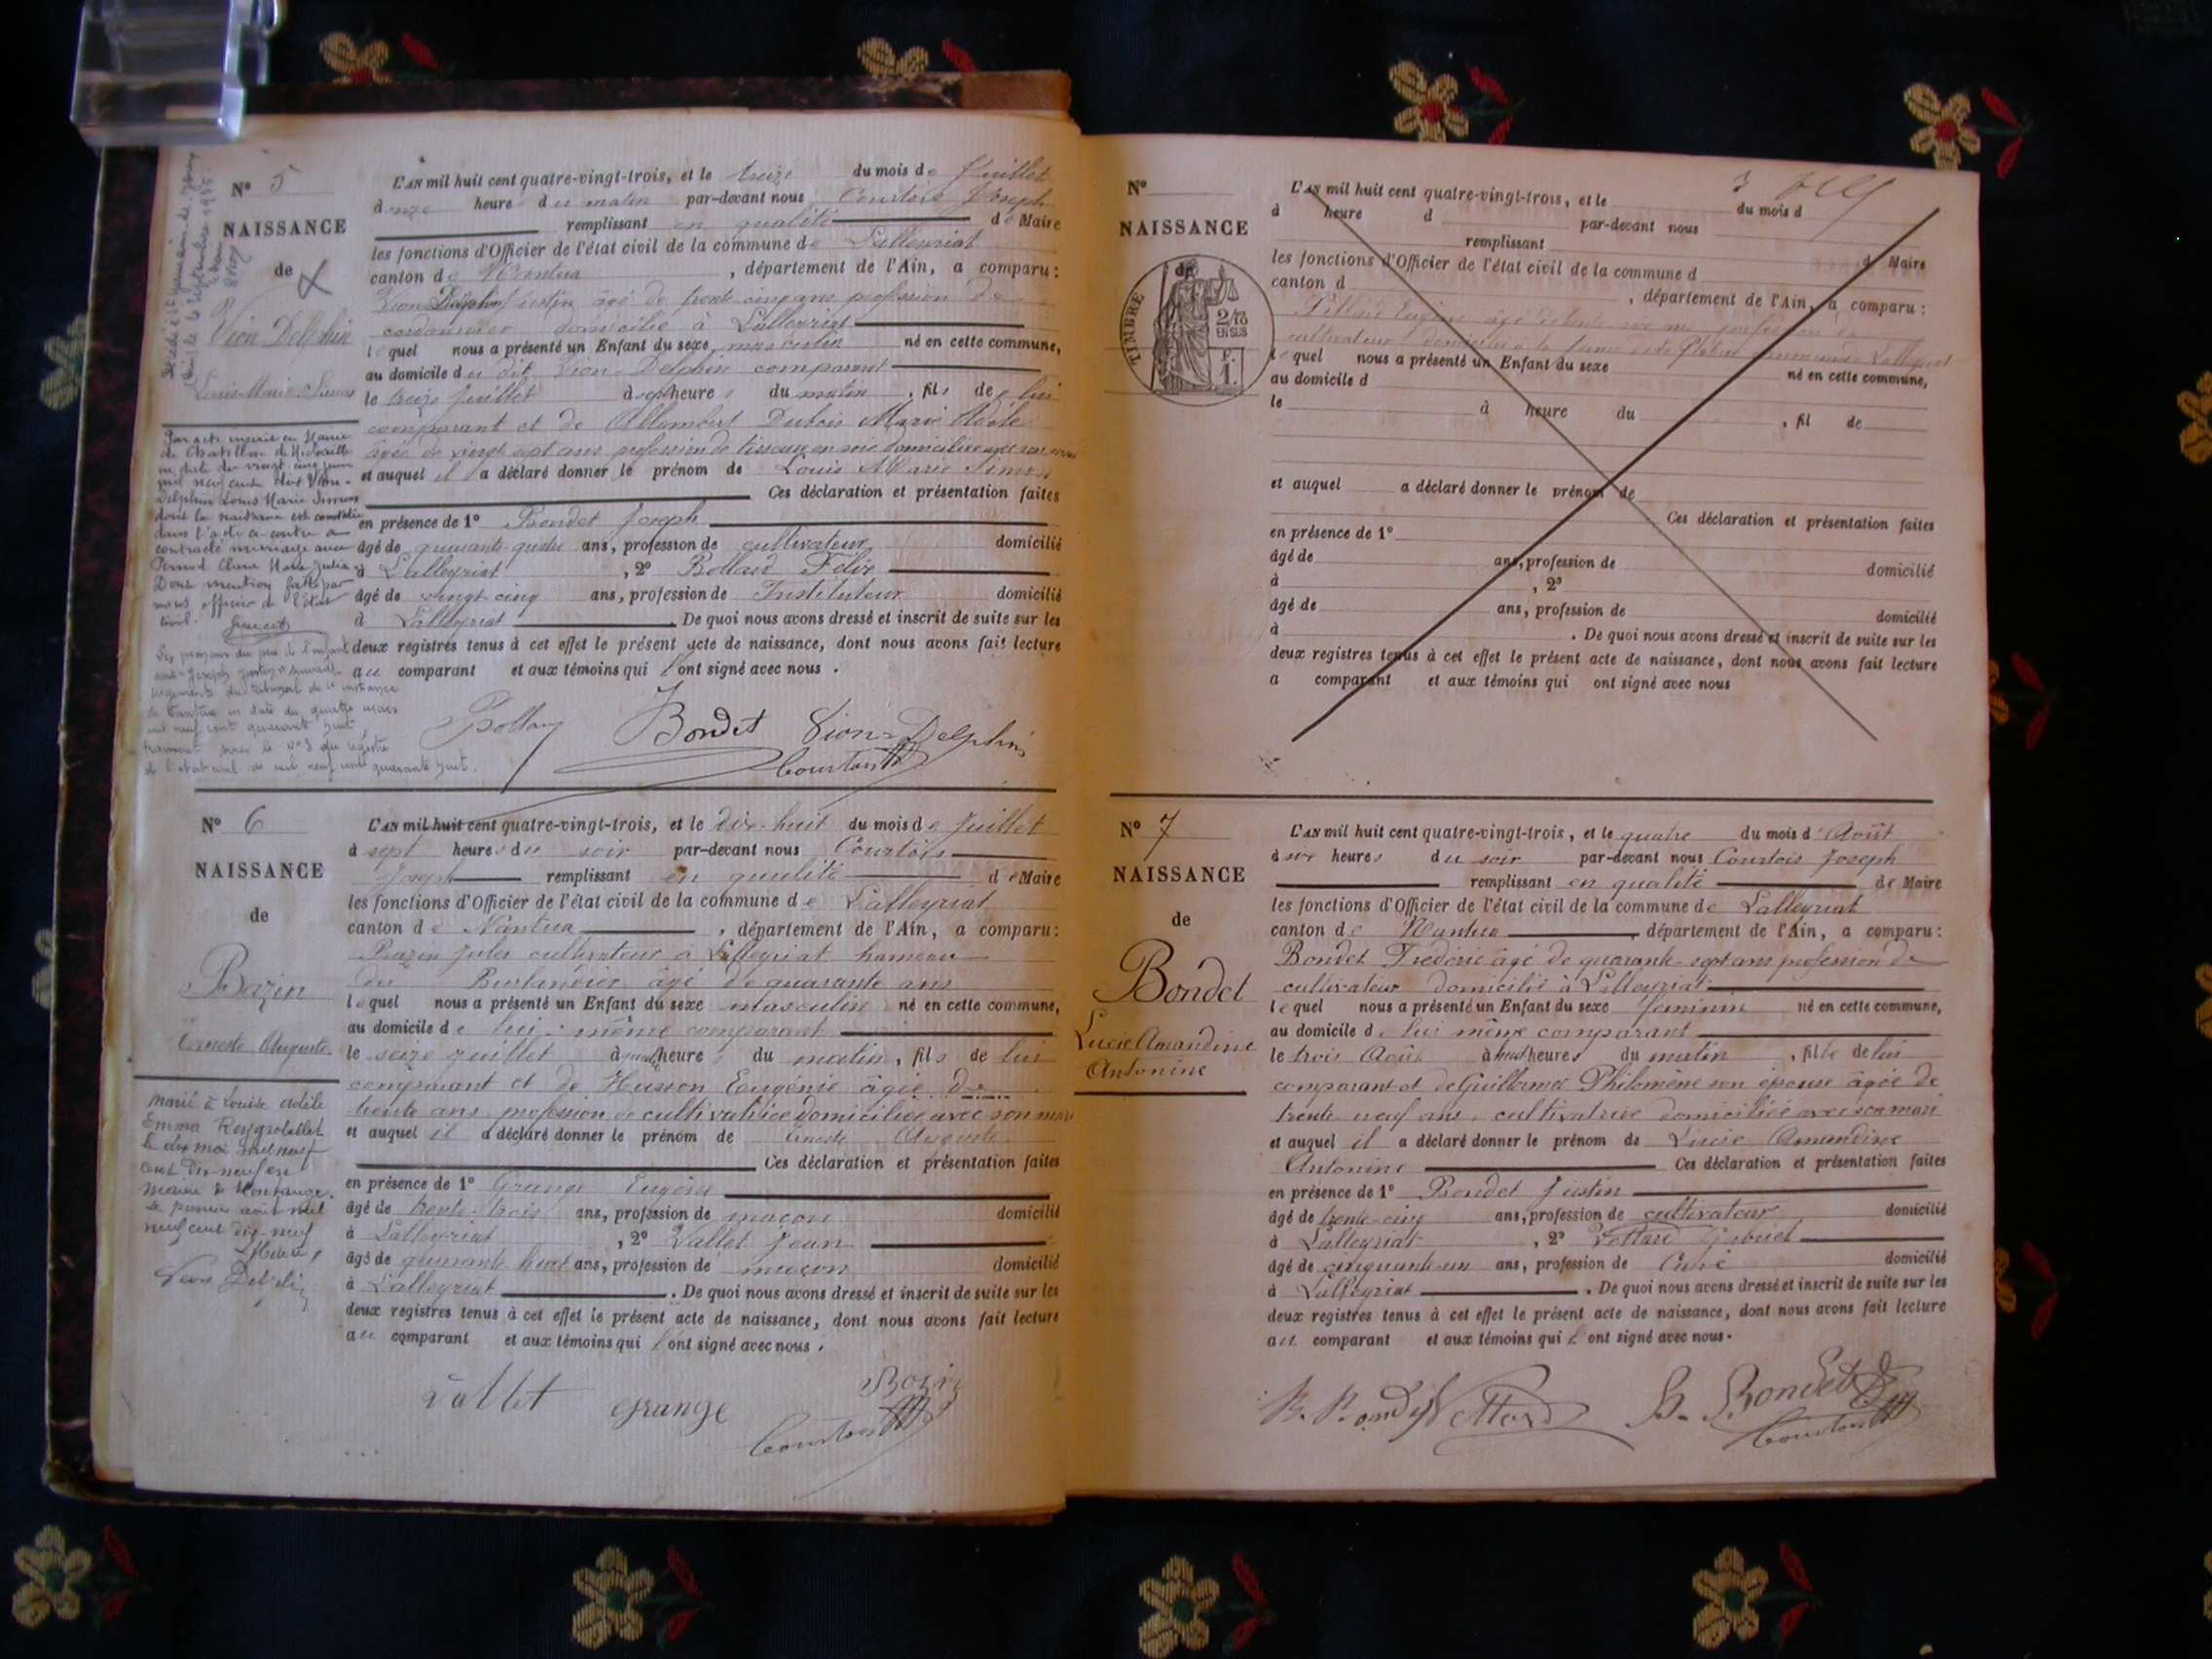 N° 5
NAISSANCE
de
Vion Delphin
Louis Marie Simon
L'AN mil huit cent quatre-vingt-trois, et le treize du mois de Juillet
à onze heure du matin par-devant nous Courtois Joseph
remplissant en qualité de Maire
les fonctions d'Officier de l'état civil de la commune de Lalleyriat
canton de Nantua, département de l'Ain, a comparu:
Vion Delphin Justin âgé de trente cinq ans profession de
cordonnier domicilié à Lalleyriat
lequel nous a présenté un Enfant du sexe masculin né en cette commune,
au domicile du dit Vion-Delphin comparant
le treize Juillet à sept heures du matin, fils de lui
comparant et de Allombert Dubois Marie Adèle
âgée de vingt sept ans profession de tisseuse en soie domiciliée avec son mari
et auquel il a déclaré donner le prénom de Louis Marie Simon
Ces déclaration et présentation faites
en présence de 1° Bondet Joseph
âgé de quarante-quatre ans, profession de cultivateur domicilié
à Lalleyriat, 2° Bollard Félix
âgé de vingt-cinq ans, profession de Instituteur domicilié
à Lalleyriat. De quoi nous avons dressé et inscrit de suite sur les
deux registres tenus à cet effet le présent acte de naissance, dont nous avons fait lecture
au comparant et aux témoins qui l'ont signé avec nous.
Bondet Vion-Delphin
Courtois
Par acte inscrit en Mairie
de Chatillon de Michaille
en date du vingt cinq juin
mil neuf cent dix Vion-
Delphin Louis Marie Simon
dont la naissance est constatée
dans l'acte ci-contre a
contracté mariage avec
Dont mention faite par
nous officier de l'état
civil.
N° 6
NAISSANCE
de
Bazin
Erneste Auguste
L'AN mil huit cent quatre-vingt-trois, et le dix-huit du mois de Juillet
à sept heures du soir par-devant nous Courtois
Joseph remplissant en qualité de Maire
les fonctions d'Officier de l'état civil de la commune de Lalleyriat
canton de Nantua, département de l'Ain, a comparu:
Bazin Jules cultivateur à Lalleyriat hameau
du âgé de quarante ans
lequel nous a présenté un Enfant du sexe masculin né en cette commune,
au domicile de lui-même comparant
le seize juillet à heure du matin, fils de lui
comparant et de Husson Eugénie âgée de
trente ans profession de cultivatrice domiciliée avec son mari
et auquel il a déclaré donner le prénom de Erneste Auguste
Ces déclaration et présentation faites
en présence de 1° Grange Eugène
âgé de trente-trois ans, profession de maçon domicilié
à Lalleyriat, 2° Vallet Jean
âgé de quarante huit ans, profession de maçon domicilié
à Lalleyriat. De quoi nous avons dressé et inscrit de suite sur les
deux registres tenus à cet effet le présent acte de naissance, dont nous avons fait lecture
au comparant et aux témoins qui l'ont signé avec nous.
Vallet Grange Bazin
Courtois
Marié à Louise Adèle
Emma
le dix mai mil neuf
cent dix-neuf en
mairie de
Le premier août mil
neuf cent dix-neuf
Le Maire,
Vion Delphin
N°
NAISSANCE
de
TIMBRE
2/10
EN SUS
F.
1.
L'AN mil huit cent quatre-vingt-trois, et le du mois d
à heure d par-devant nous
remplissant d Maire
les fonctions d'Officier de l'état civil de la commune d
canton d, département de l'Ain, a comparu:
Eugène âgé de trente six ans profession de
cultivateur domicilié à la ferme
lequel nous a présenté un Enfant du sexe né en cette commune,
au domicile d
le à heure du, fil de
et auquel a déclaré donner le prénom de
Ces déclaration et présentation faites
en présence de 1°
âgé de ans, profession de domicilié
à, 2°
âgé de ans, profession de domicilié
à. De quoi nous avons dressé et inscrit de suite sur les
deux registres tenus à cet effet le présent acte de naissance, dont nous avons fait lecture
a comparant et aux témoins qui ont signé avec nous
N° 7
NAISSANCE
de
Bondet
Lucie Amandine
Antonine
L'AN mil huit cent quatre-vingt-trois, et le quatre du mois d'Août
à six heures du soir par-devant nous Courtois Joseph
remplissant en qualité de Maire
les fonctions d'Officier de l'état civil de la commune de Lalleyriat
canton de Nantua, département de l'Ain, a comparu:
Bondet Frédéric âgé de quarante-sept ans profession de
cultivateur domicilié à Lalleyriat
lequel nous a présenté un Enfant du sexe féminin né en cette commune,
au domicile de lui même comparant
le trois Août à huit heures du matin, fille de lui
comparant et de Guillermet Philomène son épouse âgée de
trente neuf ans, cultivatrice domiciliée avec son mari
et auquel il a déclaré donner le prénom de Lucie Amandine
Antonine Ces déclaration et présentation faites
en présence de 1° Bondet Justin
âgé de trente-cinq ans, profession de cultivateur domicilié
à Lalleyriat, 2° Vottard Gabriel
âgé de cinquante-un ans, profession de Curé domicilié
à Lalleyriat. De quoi nous avons dressé et inscrit de suite sur les
deux registres tenus à cet effet le présent acte de naissance, dont nous avons fait lecture
au comparant et aux témoins qui l'ont signé avec nous.
Bondet
Courtois